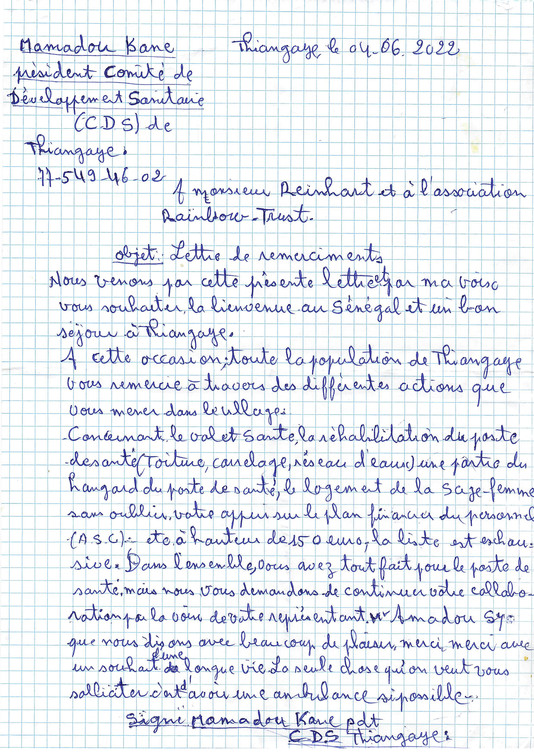 Mamadou Kane
Thiangaye le 04-06. 2022
président Comité de
Développement Sanitaire
(CDS) de
Thiangaye.
77-549-46-02
A monsieur Reinhart et à l'association
Rainbow-Trust.
objet: Lettre de remerciments
Nous venons par cette présente lettre et par ma voix
vous souhaiter, la bienvenue au Sénégal et un bon
séjour à Thiangaye.
A cette occasion, toute la population de Thiangaye
vous remercie à travers des différentes actions que
vous mener dans le village.
Concernant, le volet Santé, la réhabilitation du poste
de santé (Toiture, carrelage, réseau d'eaux) une partie du
hangard du poste de santé, le logement de la Sage-femme
sans oublier, votre appui sur le plan financier du personnel
(A.S.C) - etc à hauteur de 150 euro, la liste est exchau-
sive. Dans l'ensenble, vous avez tout fait pour le poste de
santé, mais nous vous demandons de continuer votre collabo-
ration par la voix de votre représentant, Mr Amadou Sy
que nous disons avec beaucoup de plaisir, merci, merci avec
un souhait d'une longue vie. La seule chose qu'on veut vous
solliciter c'est d'avoir une ambulance si possible.
Signé Mamadou Kane pdt
CDS Thiangaye.